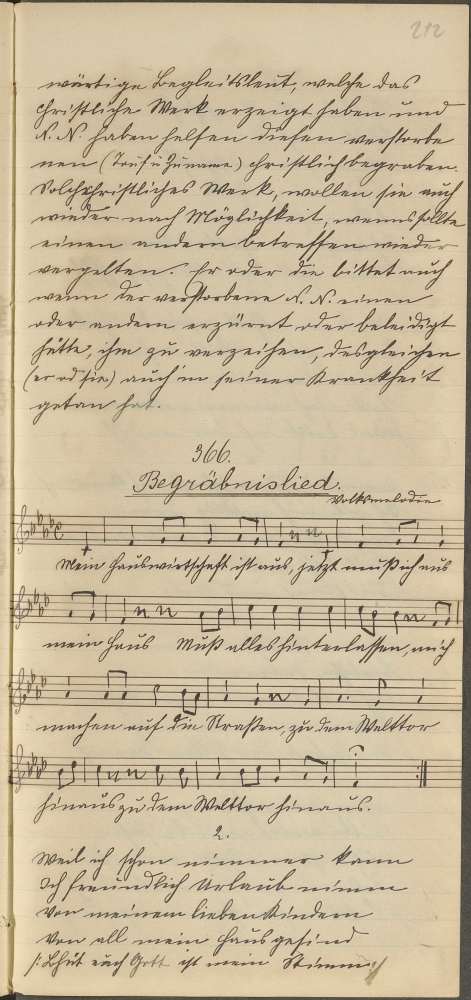 212
wärtige Begleitsleut, welche das
christliche Werk erzeigt haben und
N. N. haben helfen diesen verstorbe
nen (Tauf u Zuname) christlich begraben.
Solch christliches Werk, wollen sie auch
wieder nach Möglichkeit, wenns sollte
einen andern betreffen wieder
vergelten. Er oder die bittet auch
wenn der verstorbene N. N. einen
oder andern erzürnt oder beleidigt
hätte, ihm zu verzeihen, desgleichen
(er od sie) auch in seiner Krankheit
getan hat.
366.
Begräbnislied.
Volksmelodie
Mein Hauswirtschaft ist aus, jetzt muß ich aus
mein Haus Muß alles hinterlassen, mich
machen auf die Straßen, zu dem Welttor
hinaus zu dem Welttor hinaus.
2.
Weil ich schon nimmer kann
Ich freundlich Urlaub nimm
Von meinem lieben Kindern
Von all mein Hausgesind
/: Bhüt euch Gott ist mein Stimm :/